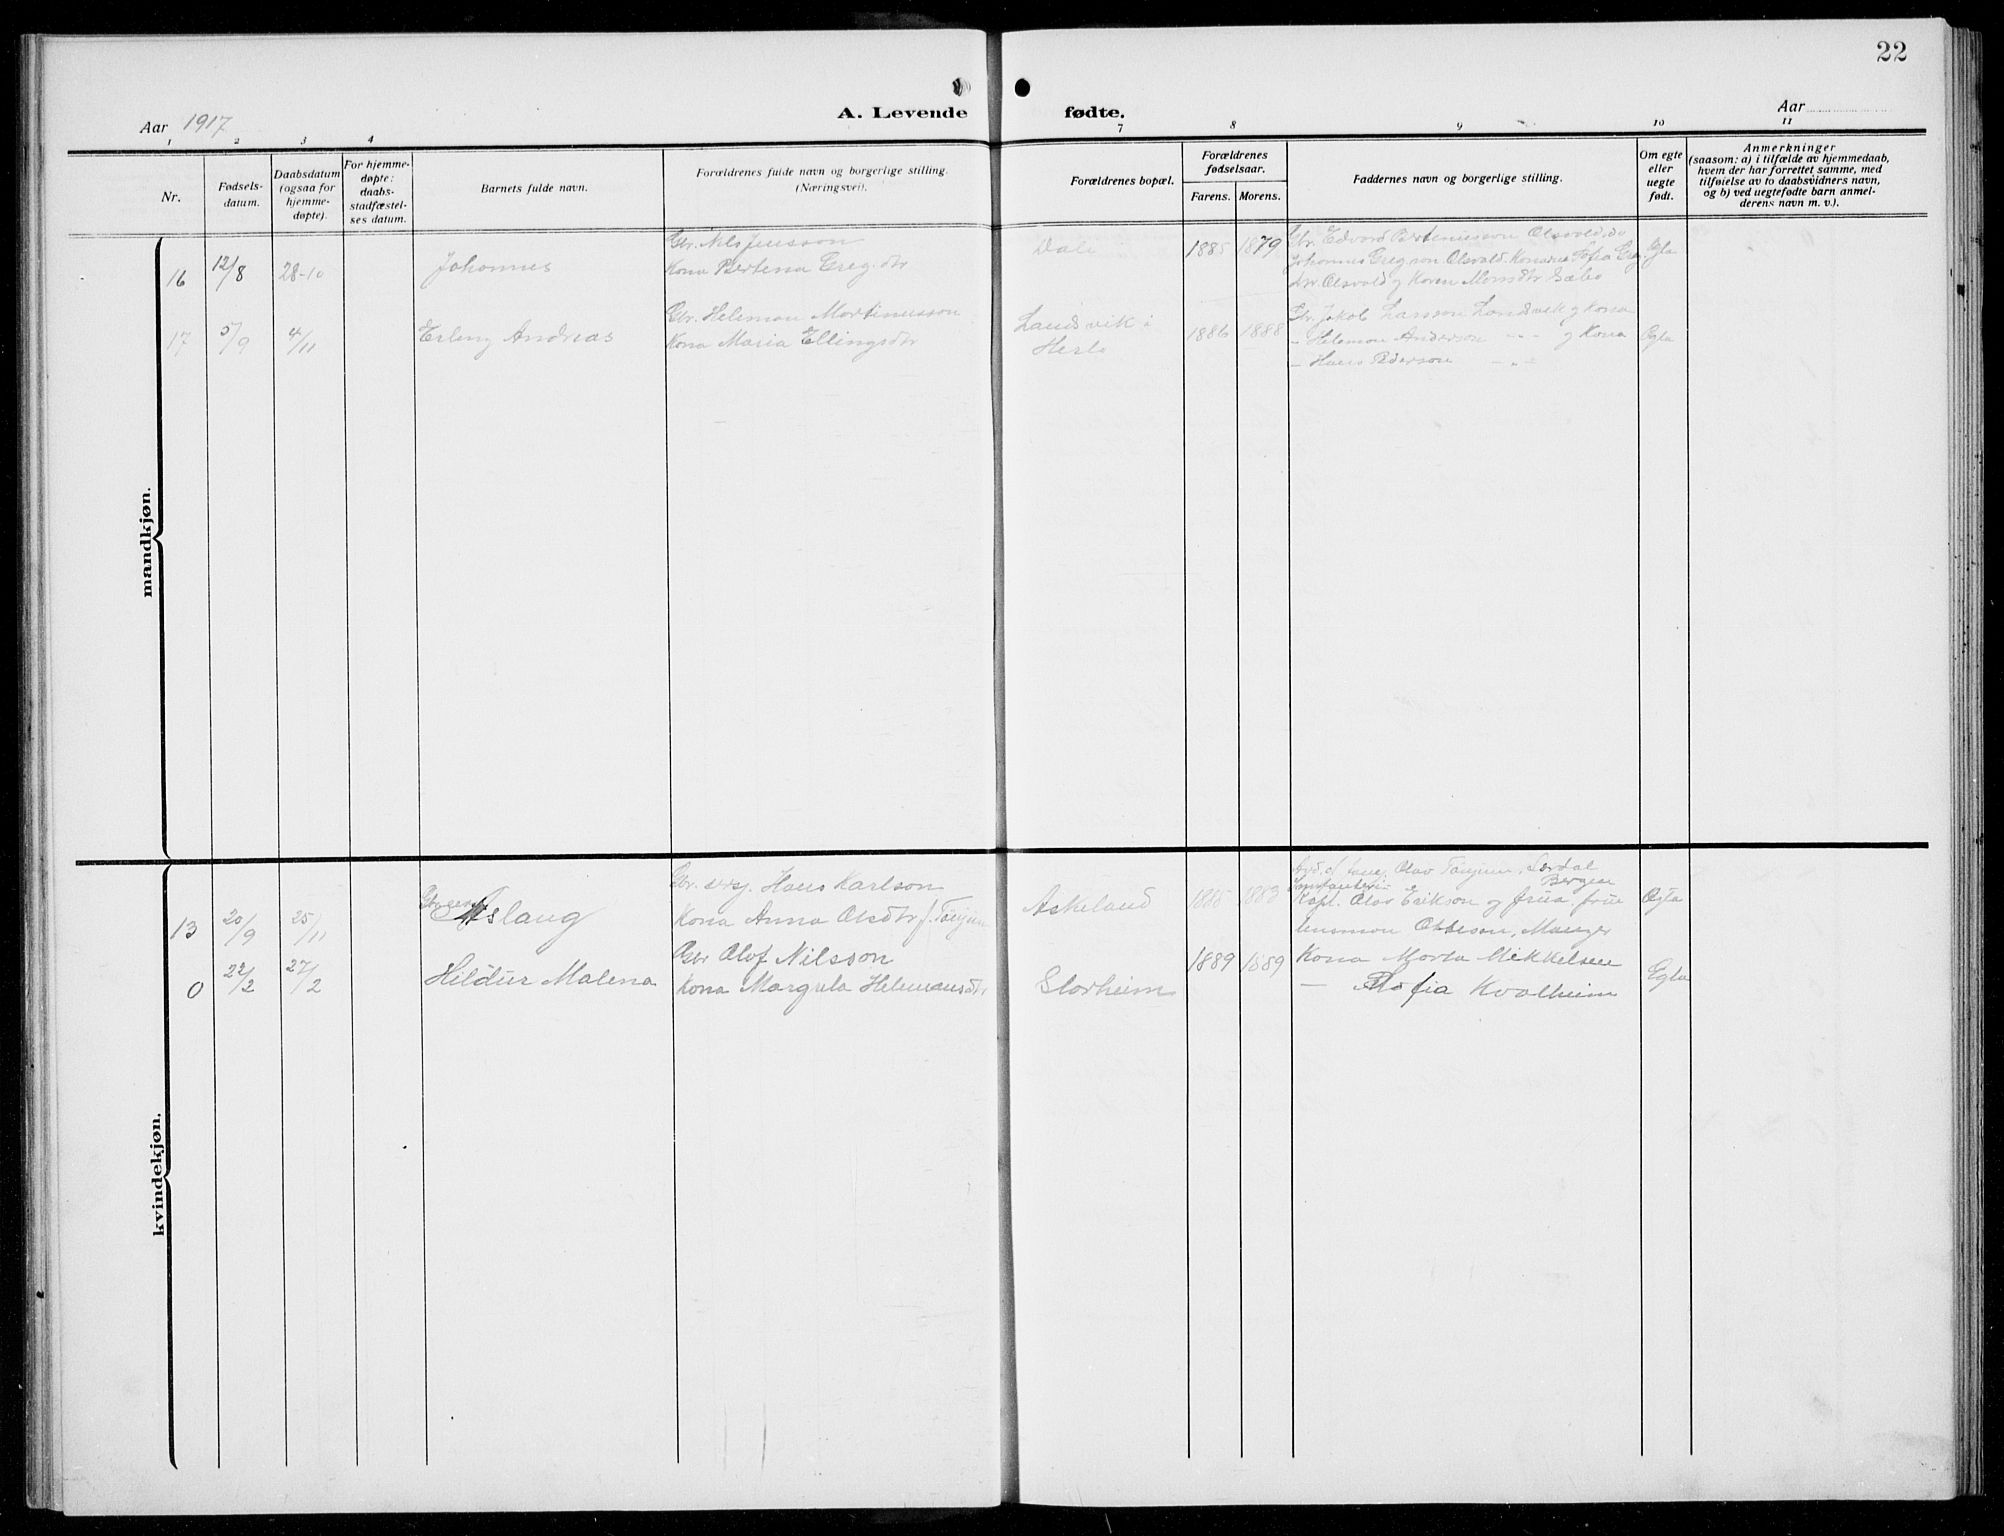 22
A. Levende fødte.
Aar 1917
Aar
1 2 3 4 7 8 9 10 11
Nr.
Fødsels-
datum.
Daabsdatum
(ogsaa for
hjemme-
døpte).
For hjemme-
døpte:
daabs-
stadfæstel-
ses datum.
Barnets fulde navn.
Forældrenes fulde navn og borgerlige stilling.
(Næringsvei).
Forældrenes bopæl.
Forældrenes
fødselsaar.
Farens. Morens.
Faddernes navn og borgerlige stilling.
Om egte
eller
uegte
født.
Anmerkninger
(saasom: a) i tilfælde av hjemmedaab,
hvem der har forrettet samme, med
tilføielse av to daabsvidners navn,
og b) ved uegtefødte barn anmel-
derens navn m. v.).
mandkjøn.
16 12/8 28-10 Johannes
Gbr. Nils Jensson
Kona Bertena Greg.dtr
Dale 1885 1879
Gbr. Edvard Bertenusson Olsvold, do
Johannes Greg.son Olsvold. Kona Sofia
Olsvold og Karen Monsdtr Sæbø
Egta
17 5/9 4/11 Erling Andreas
Gbr. Heleman Martinusson
Kona Maria Ellingsdtr
Landsvik i
Herlø
1886 1888
Gbr. Jakob Larsson Landsvik og Kona
- Heleman Anderson - " - og Kona
- Hans Pederson - " -
Egta
kvindekjøn.
13 20/9 25/11 Aslaug
Gbr. sersj. Hans Karlson
Kona Anna Olsdtr f. Tønjum
Askeland 1885 1889
Olav Tønjum, Lærdal
Bergen
Kapt. Olav Erikson og frua. frue
lensmann Otteson, Manger
Egta
0 22/2 27/2 Hildur Malena
Gbr Olof Nilsson
Kona Margreta Helemansdtr
Storheim 1889 1889
Kona Marta Mikkelsen
— Sofia Kvalheim
Egta